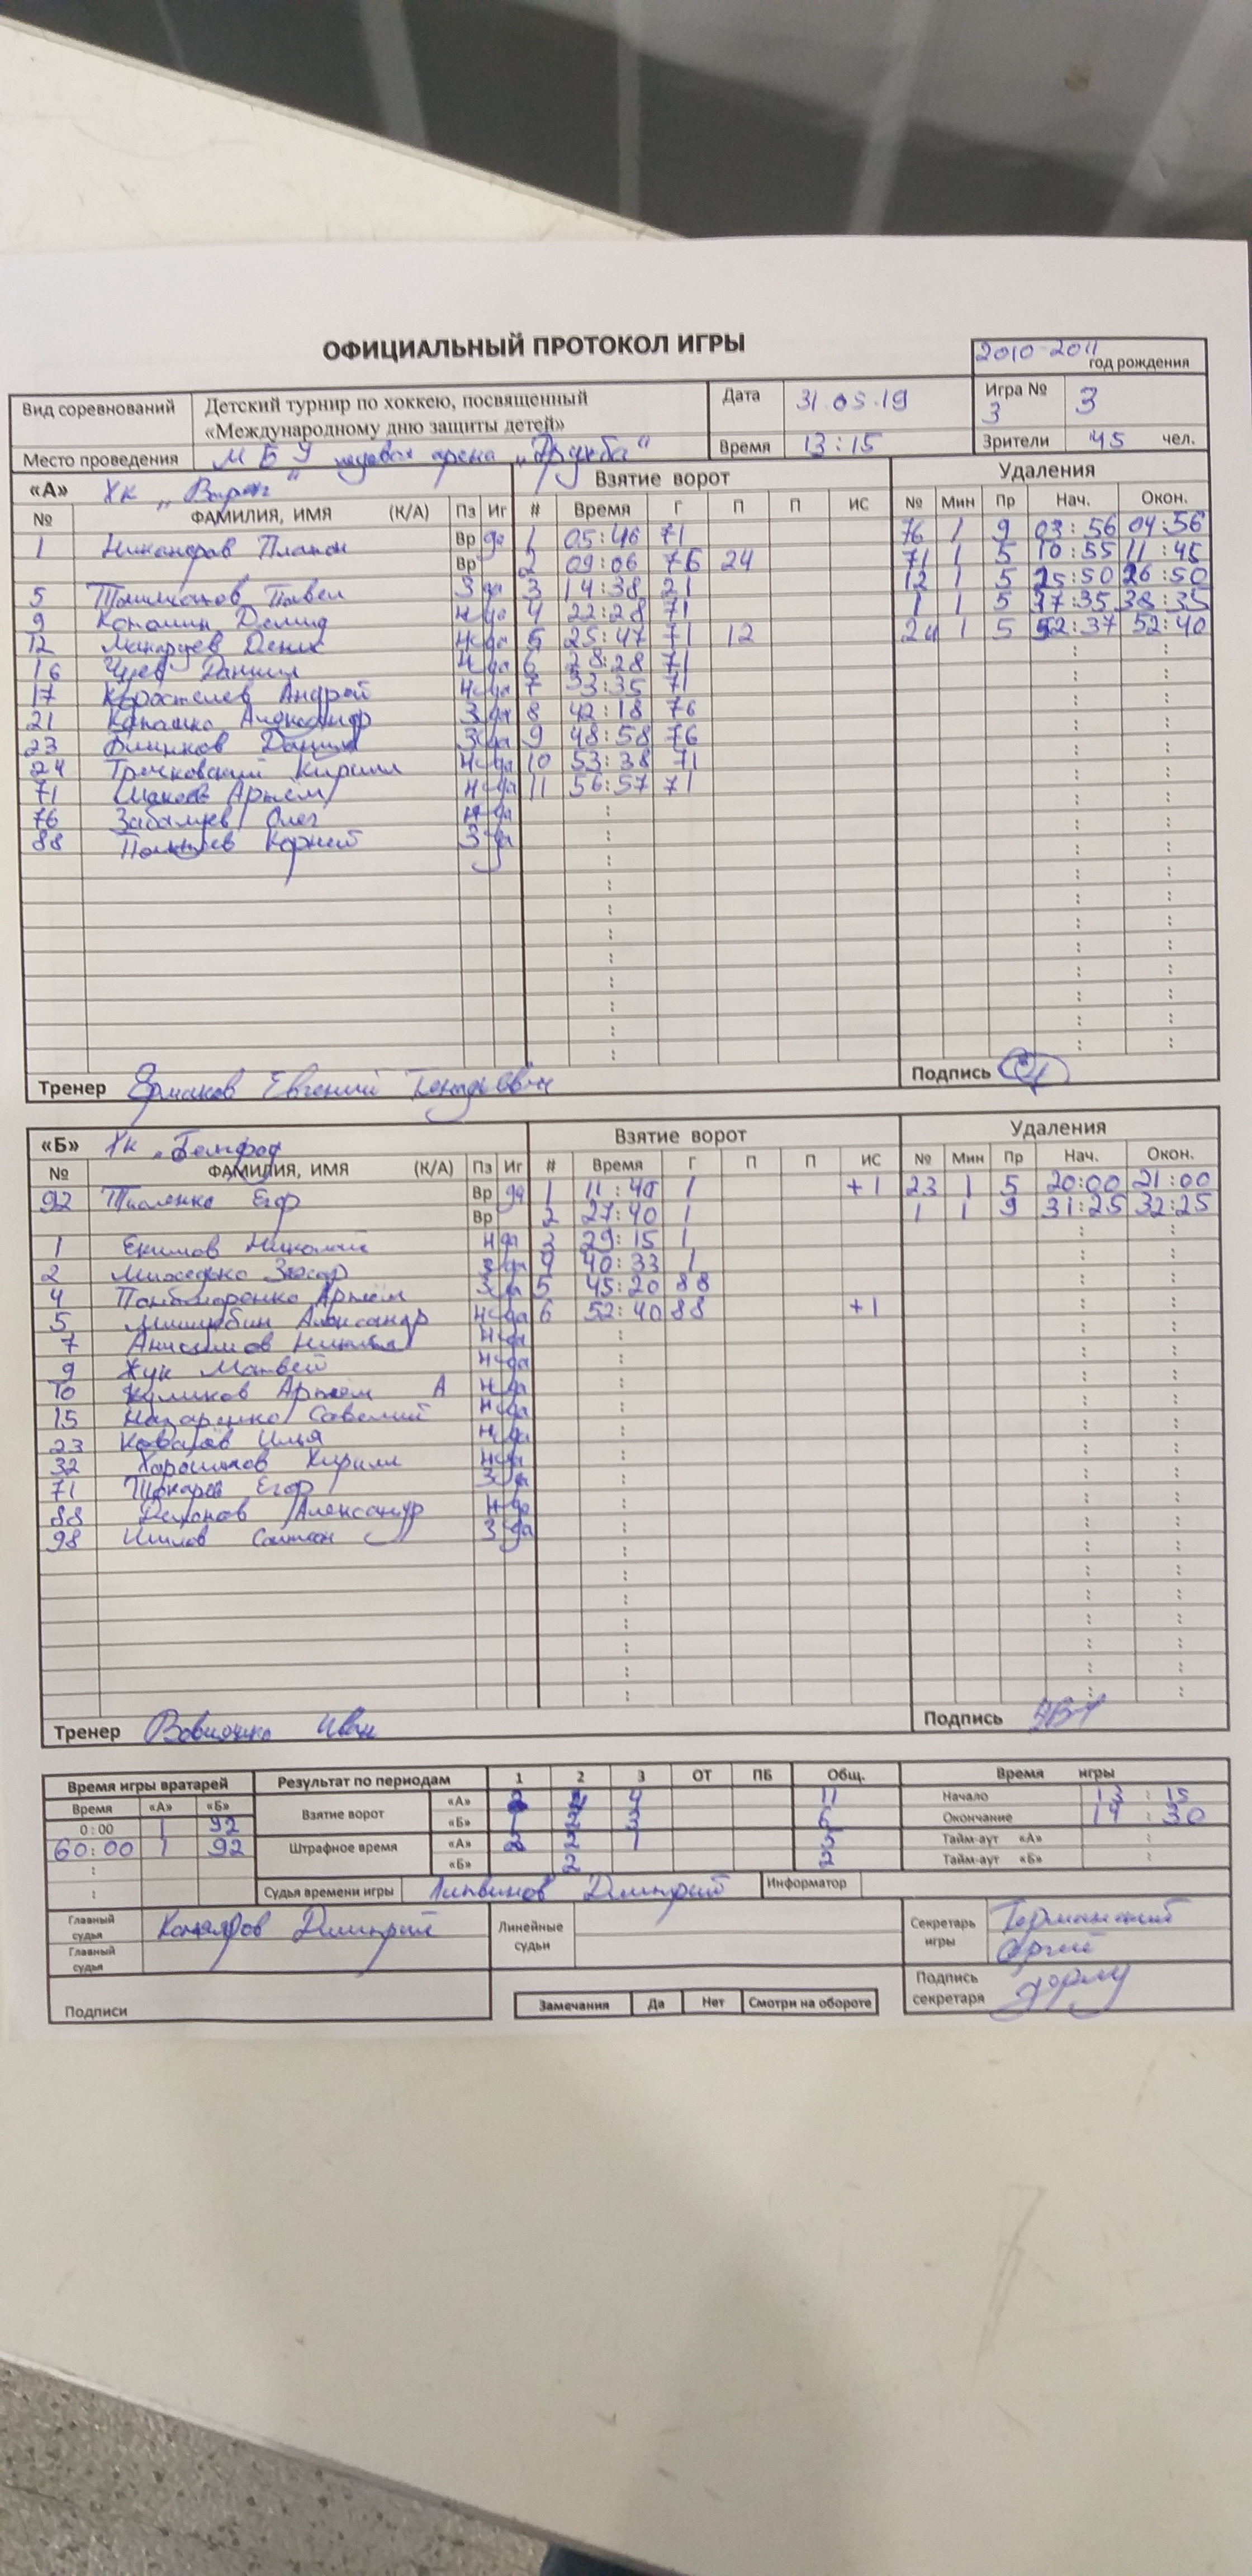 ОФИЦИАЛЬНЫЙ ПРОТОКОЛ ИГРЫ
2010-2011
год рождения
Вид соревнований Детский турнир по хоккею, посвященный «Международному дню защиты детей» Дата 31.05.19 Игра № 3 3
Место проведения МБУ ледовая арена "Дружба" Время 13:15 Зрители 45 чел.
«А» Хк "Варяг" Взятие ворот Удаления
№ ФАМИЛИЯ, ИМЯ (К/А) Пз Иг # Время Г П П ИС № Мин Пр Нач. Окон.
1 Никаноров Платон Вр да 1 05:46 71 76 1 9 03:56 04:56
Вр 2 09:06 76 24 71 1 5 10:55 11:45
5 Павел З да 3 14:38 21 12 1 5 25:50 26:50
9 Копалин Демид Н да 4 22:28 71 1 1 5 37:35 38:35
12 Денис Н да 5 25:47 71 12 24 1 5 52:37 52:40
16 Чуев Даниил Н да 6 28:28 71
17 Коростелев Андрей Н да 7 33:35 71
21 Александр З да 8 42:18 76
23 Даниил З да 9 48:58 76
24 Кирилл Н да 10 53:38 71
71 Артем Н да 11 56:57 71
76 Олег Н да
88 Корней З да
Тренер Ермаков Евгений Подпись
«Б» Хк Взятие ворот Удаления
№ ФАМИЛИЯ, ИМЯ (К/А) Пз Иг # Время Г П П ИС № Мин Пр Нач. Окон.
92 Егор Вр да 1 11:40 1 +1 23 1 5 20:00 21:00
Вр 2 27:40 1 1 1 9 31:25 32:25
1 Екимов Николай Н да 3 29:15 1
2 З да 4 40:33 1
4 Артем З да 5 45:20 88
5 Александр Н да 6 52:40 88 +1
7 Анисимов Никита Н да
9 Жук Матвей Н да
10 Куликов Артем А Н да
15 Назаренко Савелий Н да
23 Ковалев Илья Н да
32 Кирилл Н да
71 Токарев Егор З да
88 Александр Н да
98 З да
Тренер Иван Подпись
Время игры вратарей Результат по периодам 1 2 3 ОТ ПБ Общ. Время игры
Время «А» «Б» Взятие ворот «А» 4 11 Начало 13:15
0:00 1 92 «Б» 1 2 3 6 Окончание 14:30
60:00 1 92 Штрафное время «А» 2 2 1 5 Тайм-аут «А»
«Б» 2 2 Тайм-аут «Б»
Судья времени игры Литвинов Дмитрий Информатор
Главный судья Дмитрий Линейные судьи Секретарь игры
Главный судья
Подписи Замечания Да Нет Смотри на обороте Подпись секретаря